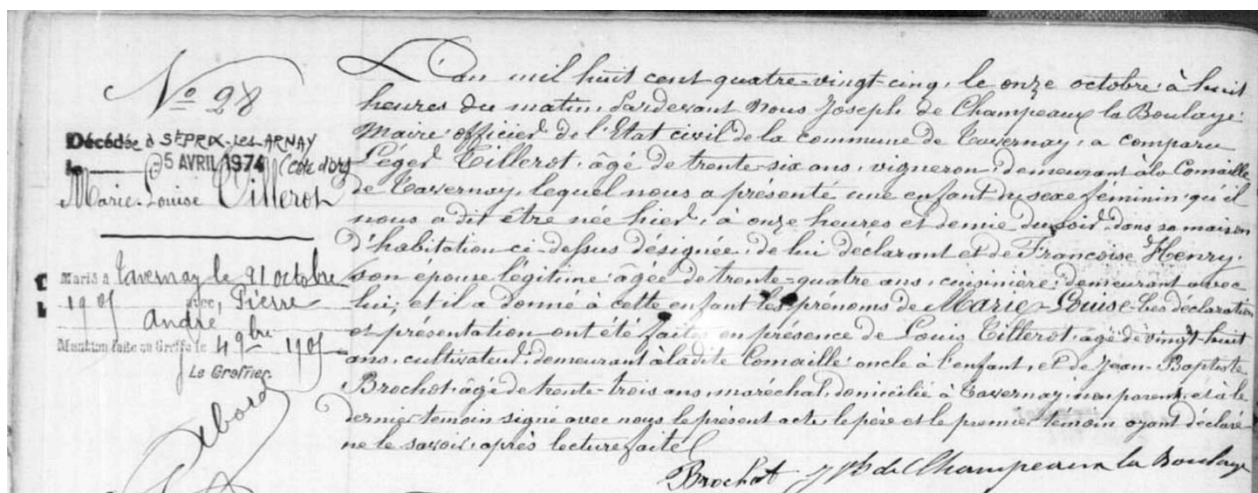 N° 28
Décédée à St PRIX-Les-ARNAY
le 5 AVRIL 1974 (Côte d'Or)
Marie-Louise Tillerot
Marié à Tavernay le 21 octobre
1905 avec Pierre
André
Mention faite au Greffe le 4 9bre 1905
Le Greffier.
L'an mil huit cent quatre-vingt-cinq, le onze octobre, à huit
heures du matin, Pardevant Nous Joseph de Champeaux la Boulaye
Maire officier de l'Etat civil de la commune de Tavernay, a comparu
Léger Tillerot, âgé de trente-six ans, vigneron, demeurant à la Comaille
de Tavernay, lequel nous a présenté une enfant du sexe féminin qu'il
nous a dit être née hier, à onze heures et demie du soir, dans sa maison
d'habitation ci-dessus désignée, de lui déclarant et de Françoise Henry,
son épouse légitime âgée de trente-quatre ans, cuisinière, demeurant avec
lui; et il a donné à cette enfant les prénoms de Marie-Louise. Ces déclaration
et présentation ont été faites en présence de Louis Tillerot, âgé de vingt-huit
ans, cultivateur, demeurant à ladite Comaille oncle à l'enfant, et de Jean-Baptiste
Brochot, âgé de trente-trois ans, maréchal, domicilié à Tavernay, non parent, et a le
dernier témoin signé avec nous le présent acte, le père et le premier témoin ayant déclaré
ne le savoir, après lecture faite
Brochot Jph de Champeaux la Boulaye